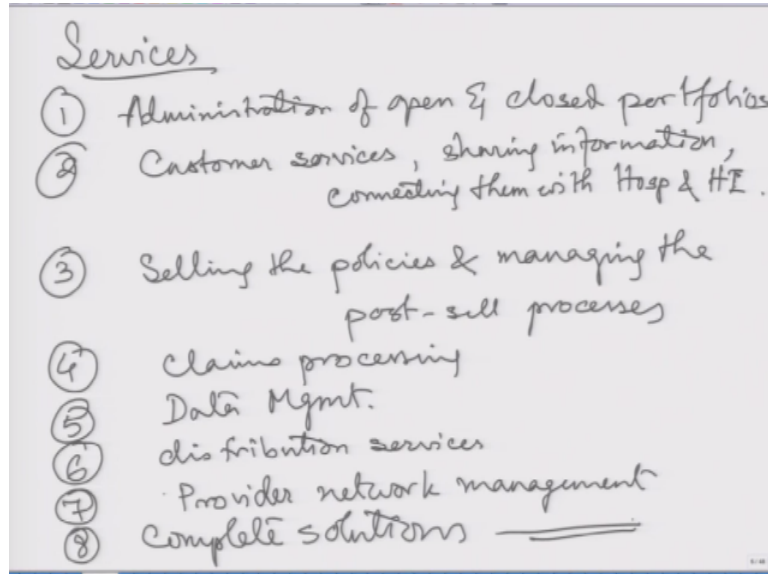 Services
① Administration of open & closed portfolios
② Customer services, sharing information,
connecting them with Hosp & HI.
③ Selling the policies & managing the
post-sell processes
④ Claims processing
⑤ Data Mgmt.
⑥ distribution services
⑦ Provider network management
⑧ Complete solutions